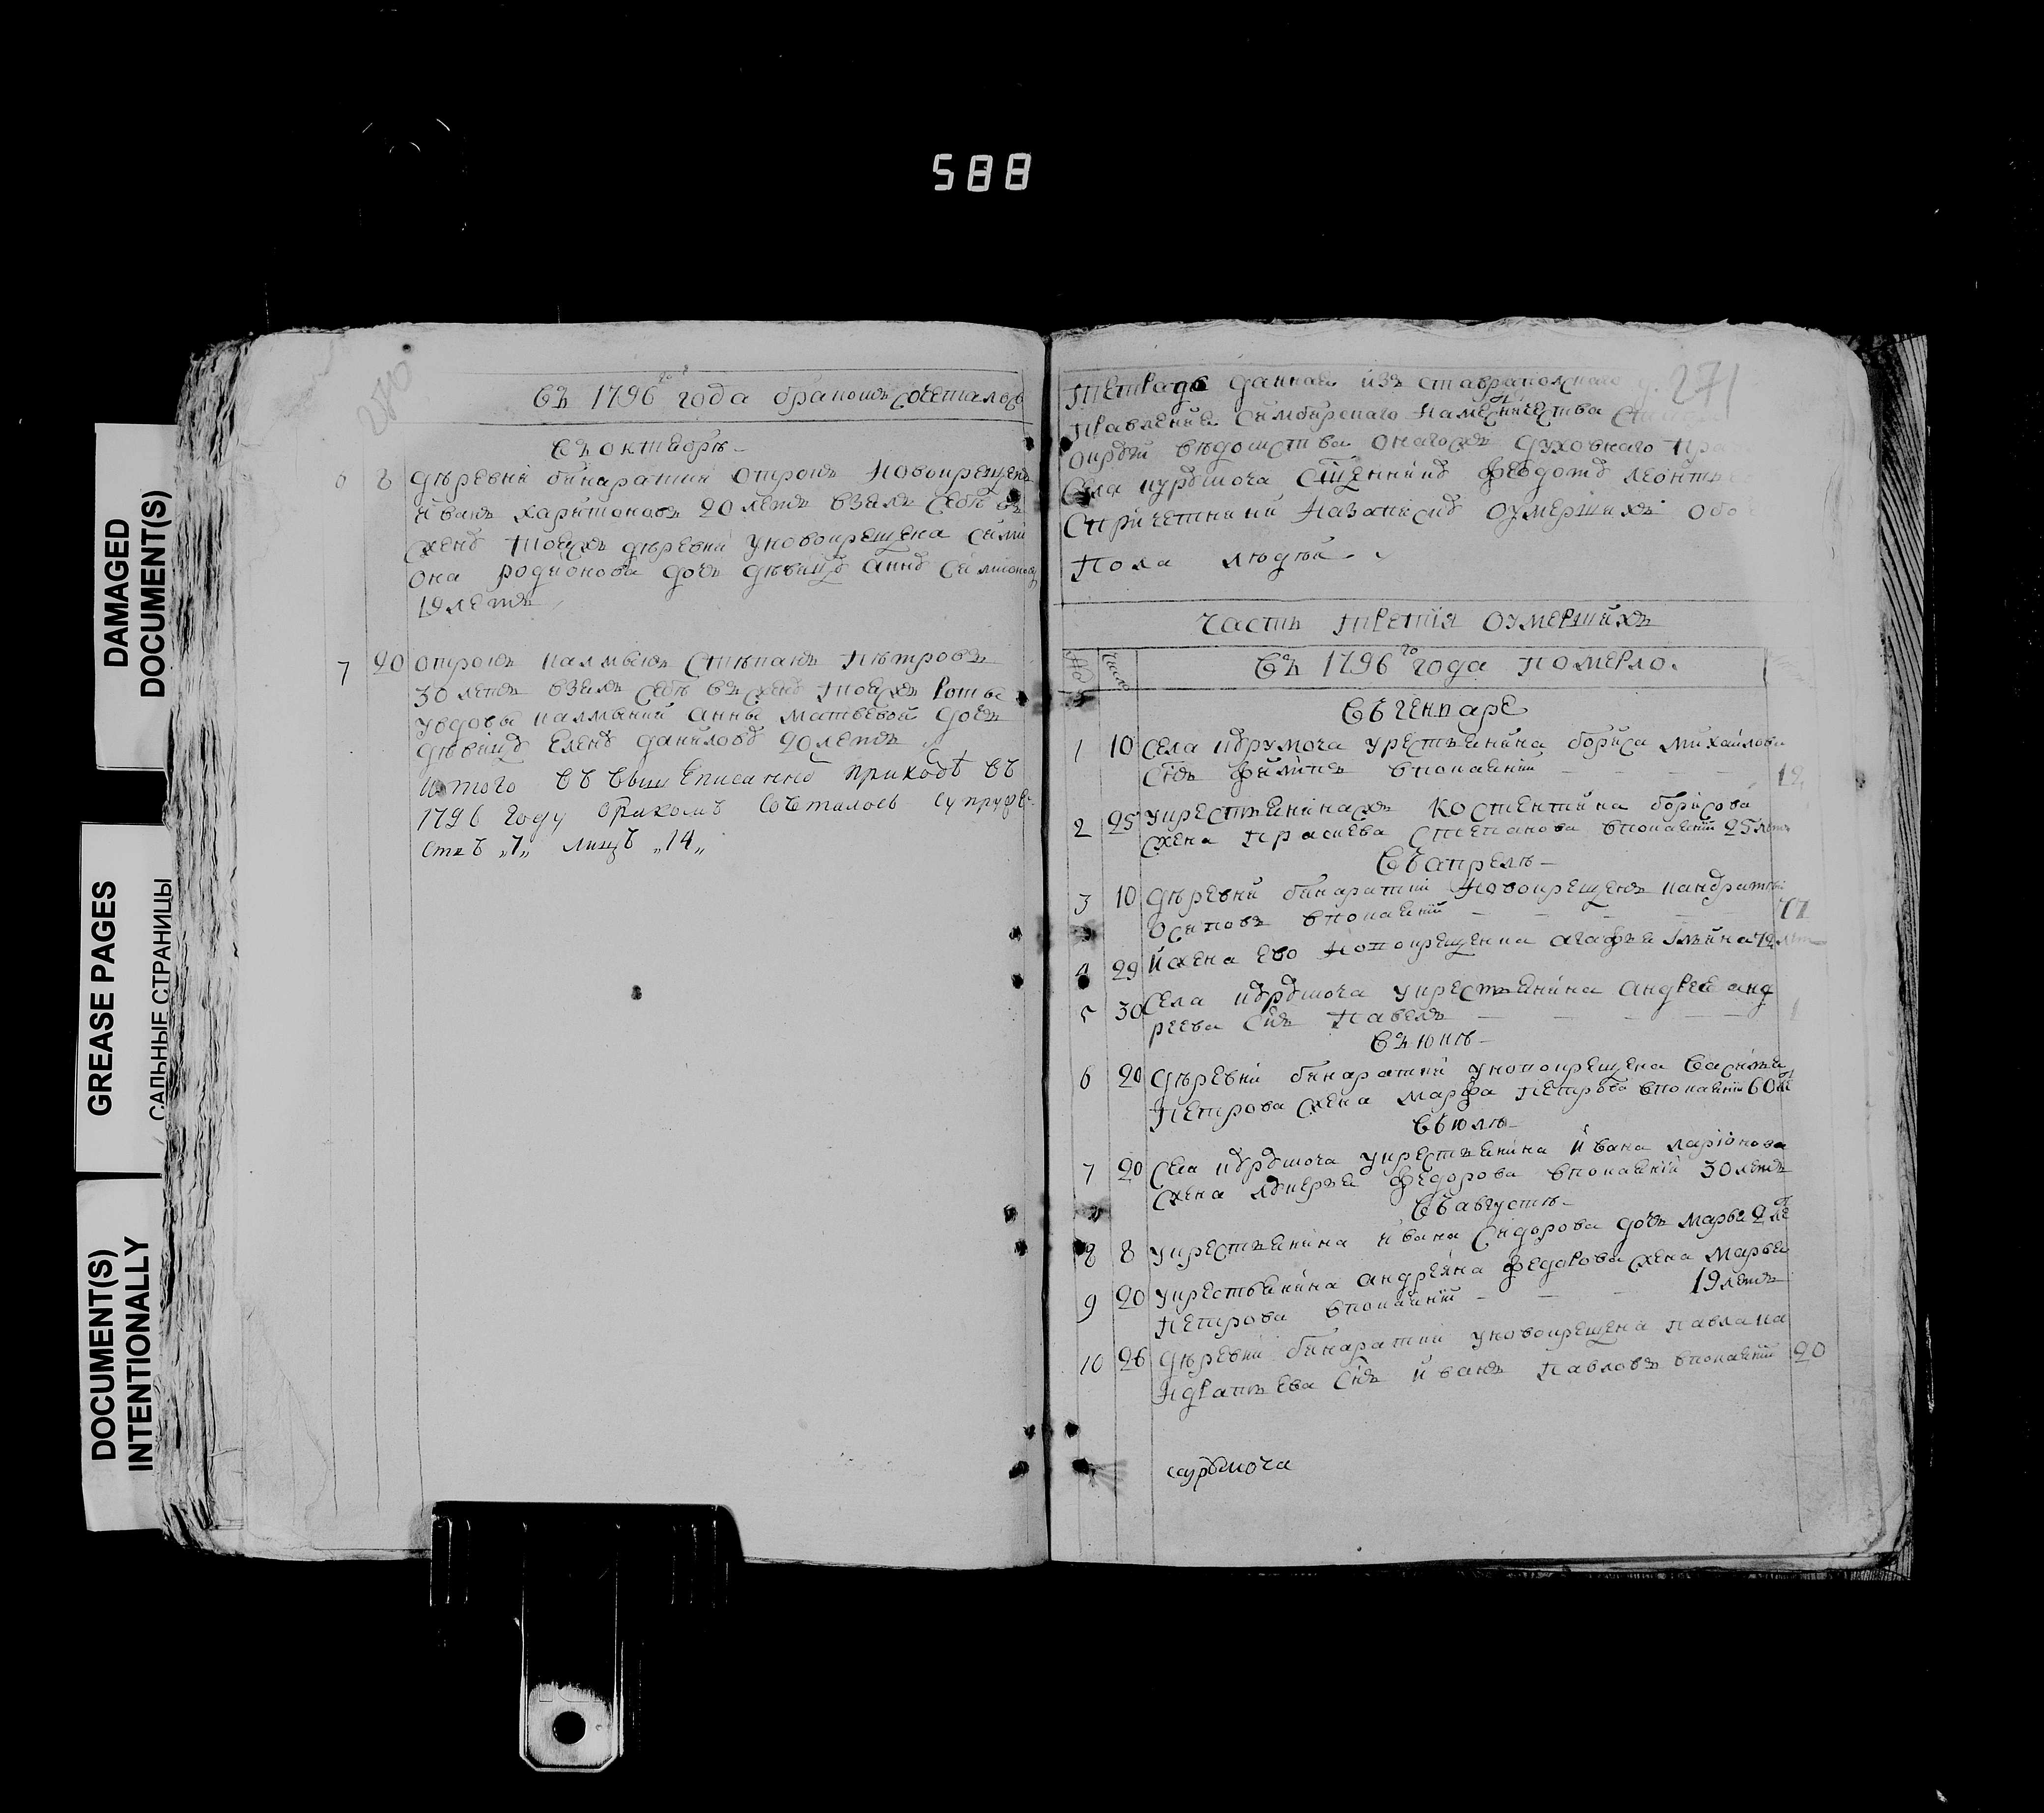 588
DAMAGED
DOCUMENT(S)
GREASE PAGES
САЛЬНЫЕ СТРАНИЦЫ
DOCUMENT(S)
INTENTIONALLY
270
Въ 1796 го года бракомъ сочеталось
Въ октябрѣ
6 8 деревни бинаратки отрокъ новокрещенъ
иванъ харитоновъ 20 летъ взялъ себѣ въ
жену тоежъ деревни у новокрещена сими
она родионова дочь девицу анну симионову
19 летъ
7 20 отрокъ калмыкъ степанъ петровъ
30 летъ взялъ себѣ въ жену тоежъ роты
у вдовы калмычки анны матвевой дочь
девицу елену данилову 20 летъ
Итого въ вышеписанномъ приходѣ въ
1796 году бракомъ совталось супруже
ствъ „7„ лицъ „14„
271
Тетрадь данная изъ ставропольскаго д.
правления симбирскаго наместничества
округи ведомства онагожъ духовнаго пра
села курумоча священнику федоту леонтье
с причетники на записку оумершихъ обо
пола людей
Часть третия оумершихъ
No число
Въ 1796 го года померло.
Въ генваре
1 10 села курумоча у крестьянина бориса михайлова
сынъ филипъ в покаянии 12
2 25 у крестьянинажъ костентина борисова
жена прасковья степанова в покаянии 25 летъ
Въ апреле
3 10 деревни бинаратки новокрещенъ кандратей
осиповъ в покаянии 77
4 29 и жена ево новокрещенка агафья ильина 72 лет
5 30 села курумоча у крестьянина андрея анд
реева сынъ павелъ 1
Въ июнѣ
6 20 деревни бинаратки у новокрещена василья
петрова жена марфа петрова в покаянии 60 ле
Въ июлѣ
7 20 села курумоча у крестьянина ивана ларионова
жена лукерья федорова в покаянии 30 летъ
Въ августѣ
8 8 у крестьянина ивана сидорова дочь марья 2 ле
9 20 у крестьянина андреяна федорова жена марья
петрова в покаянии 19 летъ
10 26 деревни бинаратки у новокрещена павла ка
ндратьева сынъ иванъ павловъ в покаянии 20